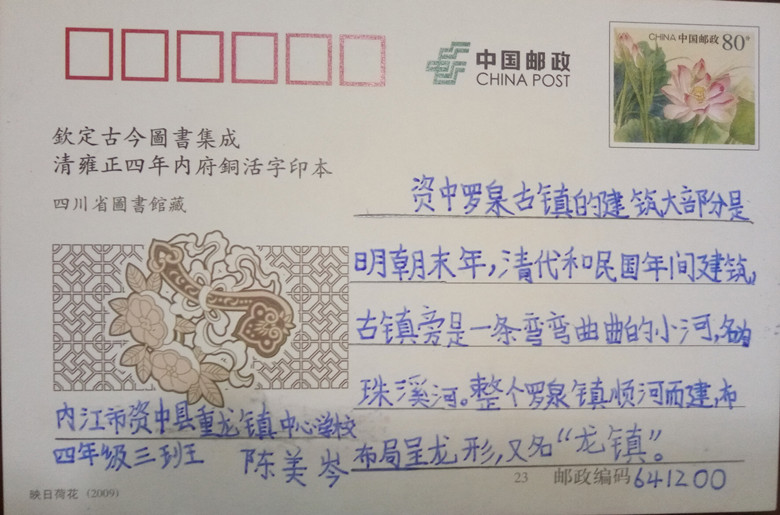 中国邮政
CHINA POST
CHINA 中国邮政 80分
钦定古今圖書集成
清雍正四年内府銅活字印本
四川省圖書館藏
资中罗泉古镇的建筑大部分是
明朝末年，清代和民国年间建筑，
古镇旁是一条弯弯曲曲的小河，名为
珠溪河。整个罗泉镇顺河而建，布
布局呈龙形，又名“龙镇”。
内江市资中县重龙镇中心学校
四年级三班王 陈美岑
映日荷花 (2009)
23
邮政编码 641200